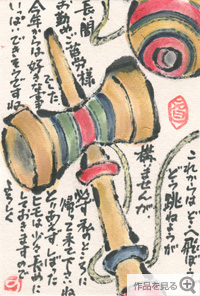 長い間
お勤めご苦労様
でした
今年からは好きな事
いっぱいできそうですね
これからはどこへ飛ぼうが
どう跳ねようが
構いませんが
必ず私のところに
帰って来て下さいね
とりあえずしばった
ヒモは少々長めに
しておきますので
よろしく
作品を見る